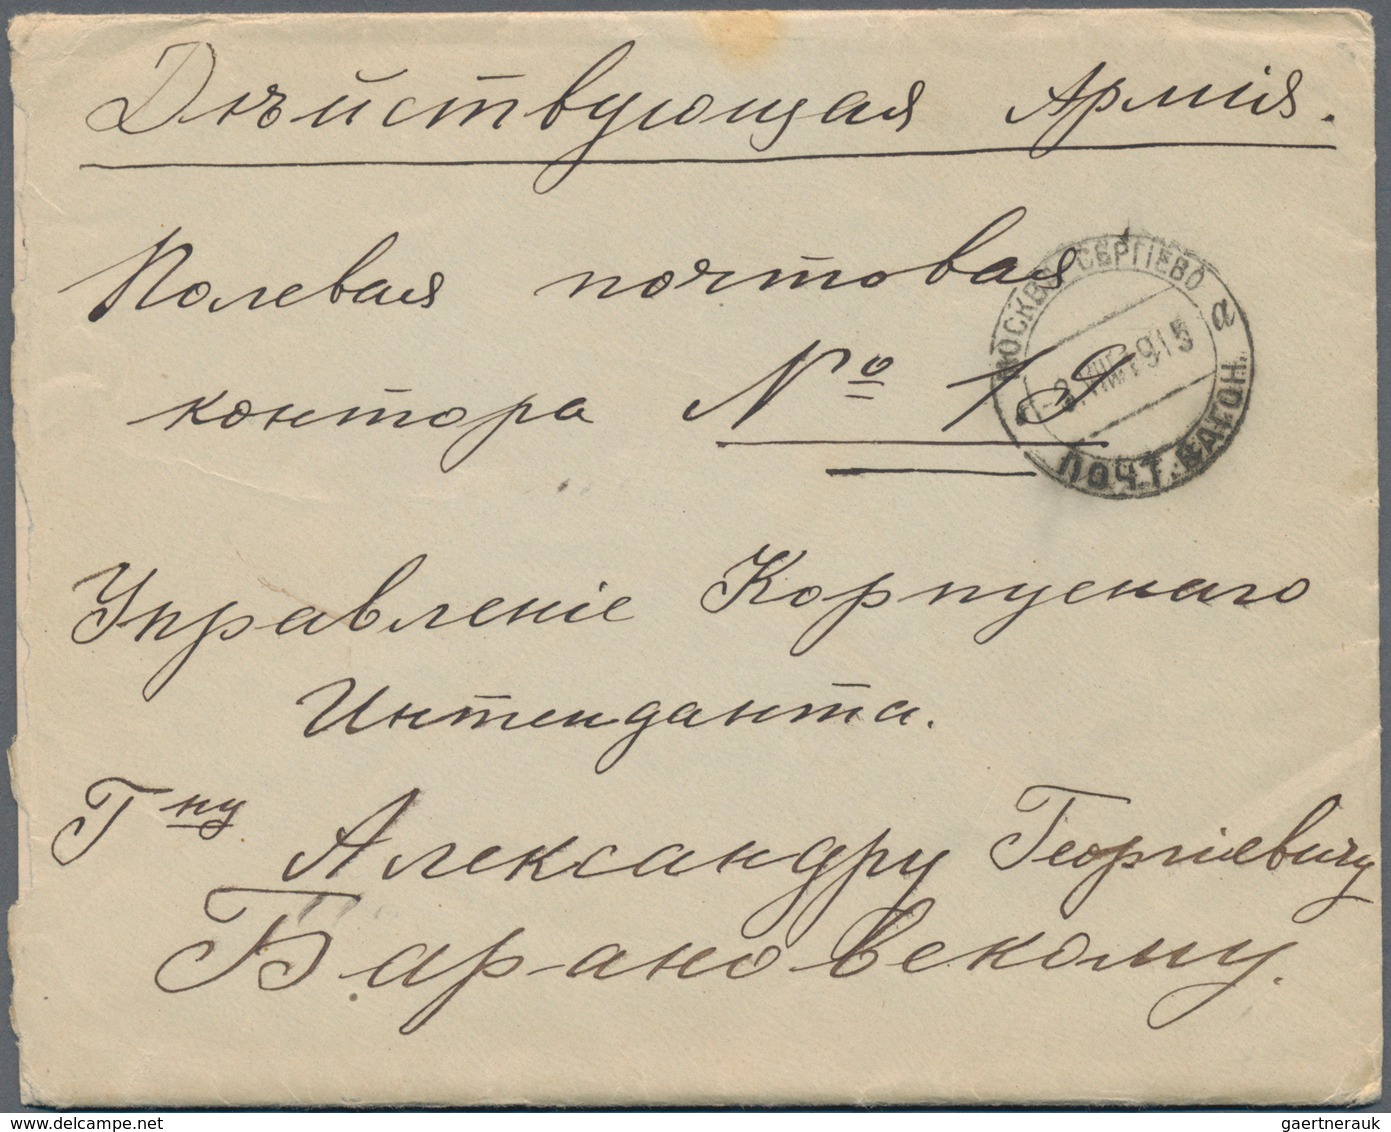 Дѣйствующая Армія.
Полевая почтовая
контора №
МОСКВА СЕРГІЕВО
а
1915
ПОЧТ. ВАГОН.
Управленіе Корпуснаго
Интенданта.
Г ну
Александру Георгіевичу
Барановскому.
gaertnerauk